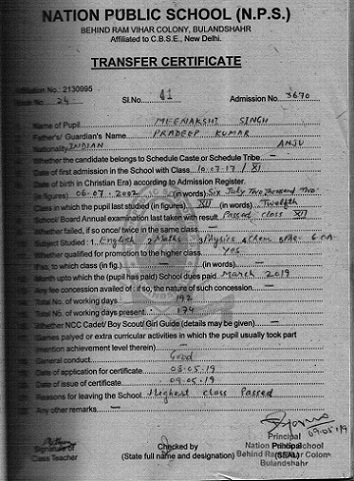 NATION PUBLIC SCHOOL (N.P.S.)
BEHIND RAM VIHAR COLONY, BULANDSHAHR
Affiliated to C.B.S.E., New Delhi.
TRANSFER CERTIFICATE
Affiliation No. 2130995
Book No. 24 Sl.No. 41 Admission No. 3670
Name of Pupil MEENAKSHI SINGH
Father's/ Guardian's Name PRADEEP KUMAR
Nationality INDIAN ANJU
Whether the candidate belongs to Schedule Caste or Schedule Tribe —
Date of first admission in the School with Class 10.07.17 / XI
Date of birth in Christian Era) according to Admission Register.
(in figures) 06-07-2002 (in words) Six July Two Thousand Two
Class in which the pupil last studied (in figures) XII (in words) Twelfth
School/ Board Annual examination last taken with result Passed class XII
Whether failed, if so once/ twice in the same class —
Subject Studied : 1. English 2 Maths 3 Physics 4 Chem 5 6
Whether qualified for promotion to the higher class Yes
If so, to which class (in fig.) — (in words) —
Months upto which the (pupil has paid) School dues paid March 2019
Any fee concession availed of : if so, the nature of such concession —
Total No. of working days 192
Total No. of working days present 174
Whether NCC Cadet/ Boy Scout/ Girl Guide (details may be given) —
Games palyed or extra curricular activities in which the pupil usually took part
(mention achievement level therein) —
General conduct Good
Date of application for certificate 03-05-19
Date of issue of certificate 09-05-19
Reasons for leaving the School Highest class Passed
Any other remarks —
09-05-019
Principal
Signature of Checked by Nation Public School
Class Teacher (State full name and designation) (SEAL) Behind Ram Vihar Colony
Bulandshahr